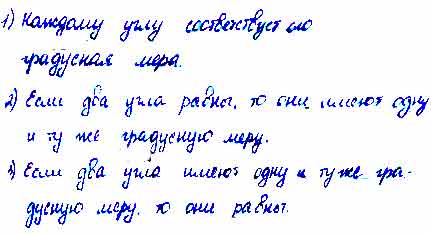 1) Каждому углу соответствует его
градусная мера.
2) Если два угла равны, то они имеют одну
и ту же градусную меру.
3) Если два угла имеют одну и ту же гра-
дусную меру, то они равны.